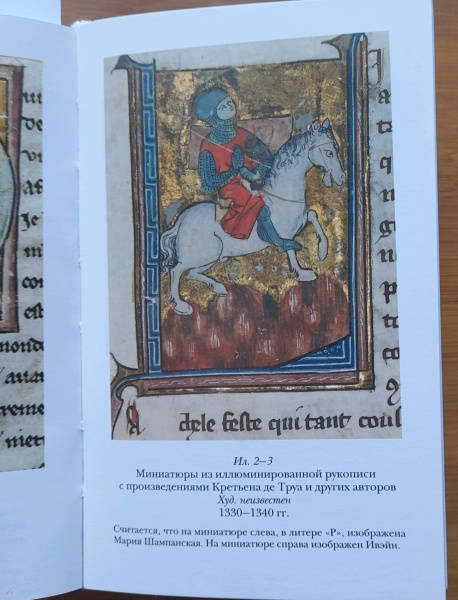 de
Je
con
est
dele feste qui tant cous
Ил. 2–3
Миниатюры из иллюминированной рукописи
с произведениями Кретьена де Труа и других авторов
Худ. неизвестен
1330–1340 гг.
Считается, что на миниатюре слева, в литере «Р», изображена
Мария Шампанская. На миниатюре справа изображен Ивэйн.